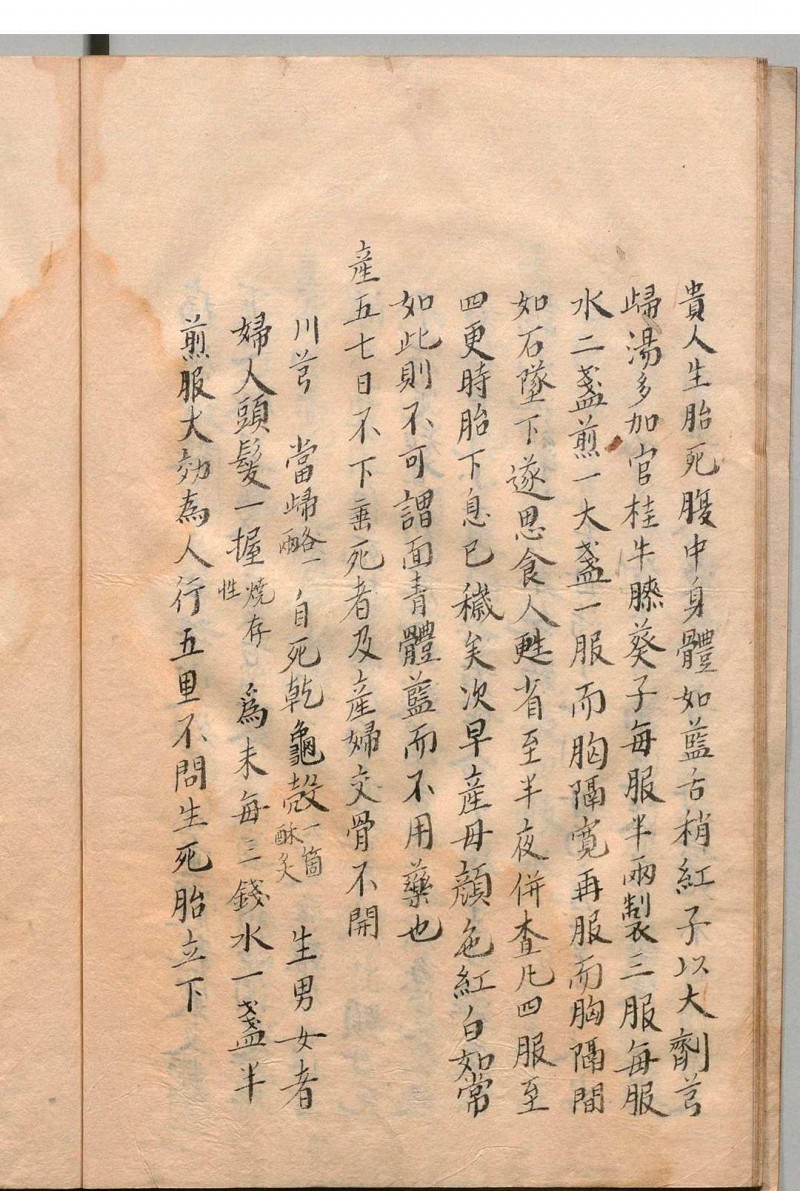 貴人生胎死腹中身體如藍舌稍紅子以大劑芎
歸湯多加官桂牛膝葵子每服半兩製三服每服
水二盞煎一大盞一服而胸隔寛再服而胸隔間
如石墜下遂思食人甦省至半夜併查凢四服至
四更時胎下息已穢矣次早産母顔色紅白如常
如此則不可謂面青體藍而不用藥也
産五七日不下垂死者及産婦交骨不開
川芎 當歸各一兩 自死乾龜殻一箇酥炙 生男女者
婦人頭髮一握燒存性 為末每三錢水一盞半
煎服大効為人行五里不問生死胎立下